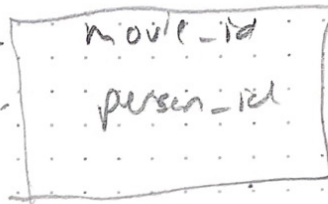 movie_id
person_id